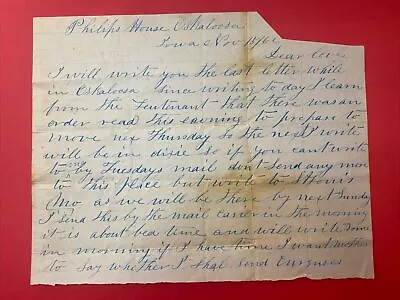 Philips House Oskaloosa
Iowa Nov 15/62
Dear love
I will write you the last letter while
in Oskaloosa Since writing to day I learn
from the Lieutenant that there was an
order read this evening to prepare to
move nex Thursday So the nex I write
will be in dixie so if you cant write
to by Tuesdays mail dont send any more
to this place but write to St Louis
Mo as we will be there by next Sunday
I send this by the mail carier in the morning
it is about bed time and will write some
in morning if I have time I want mother
to Say whether I shal send